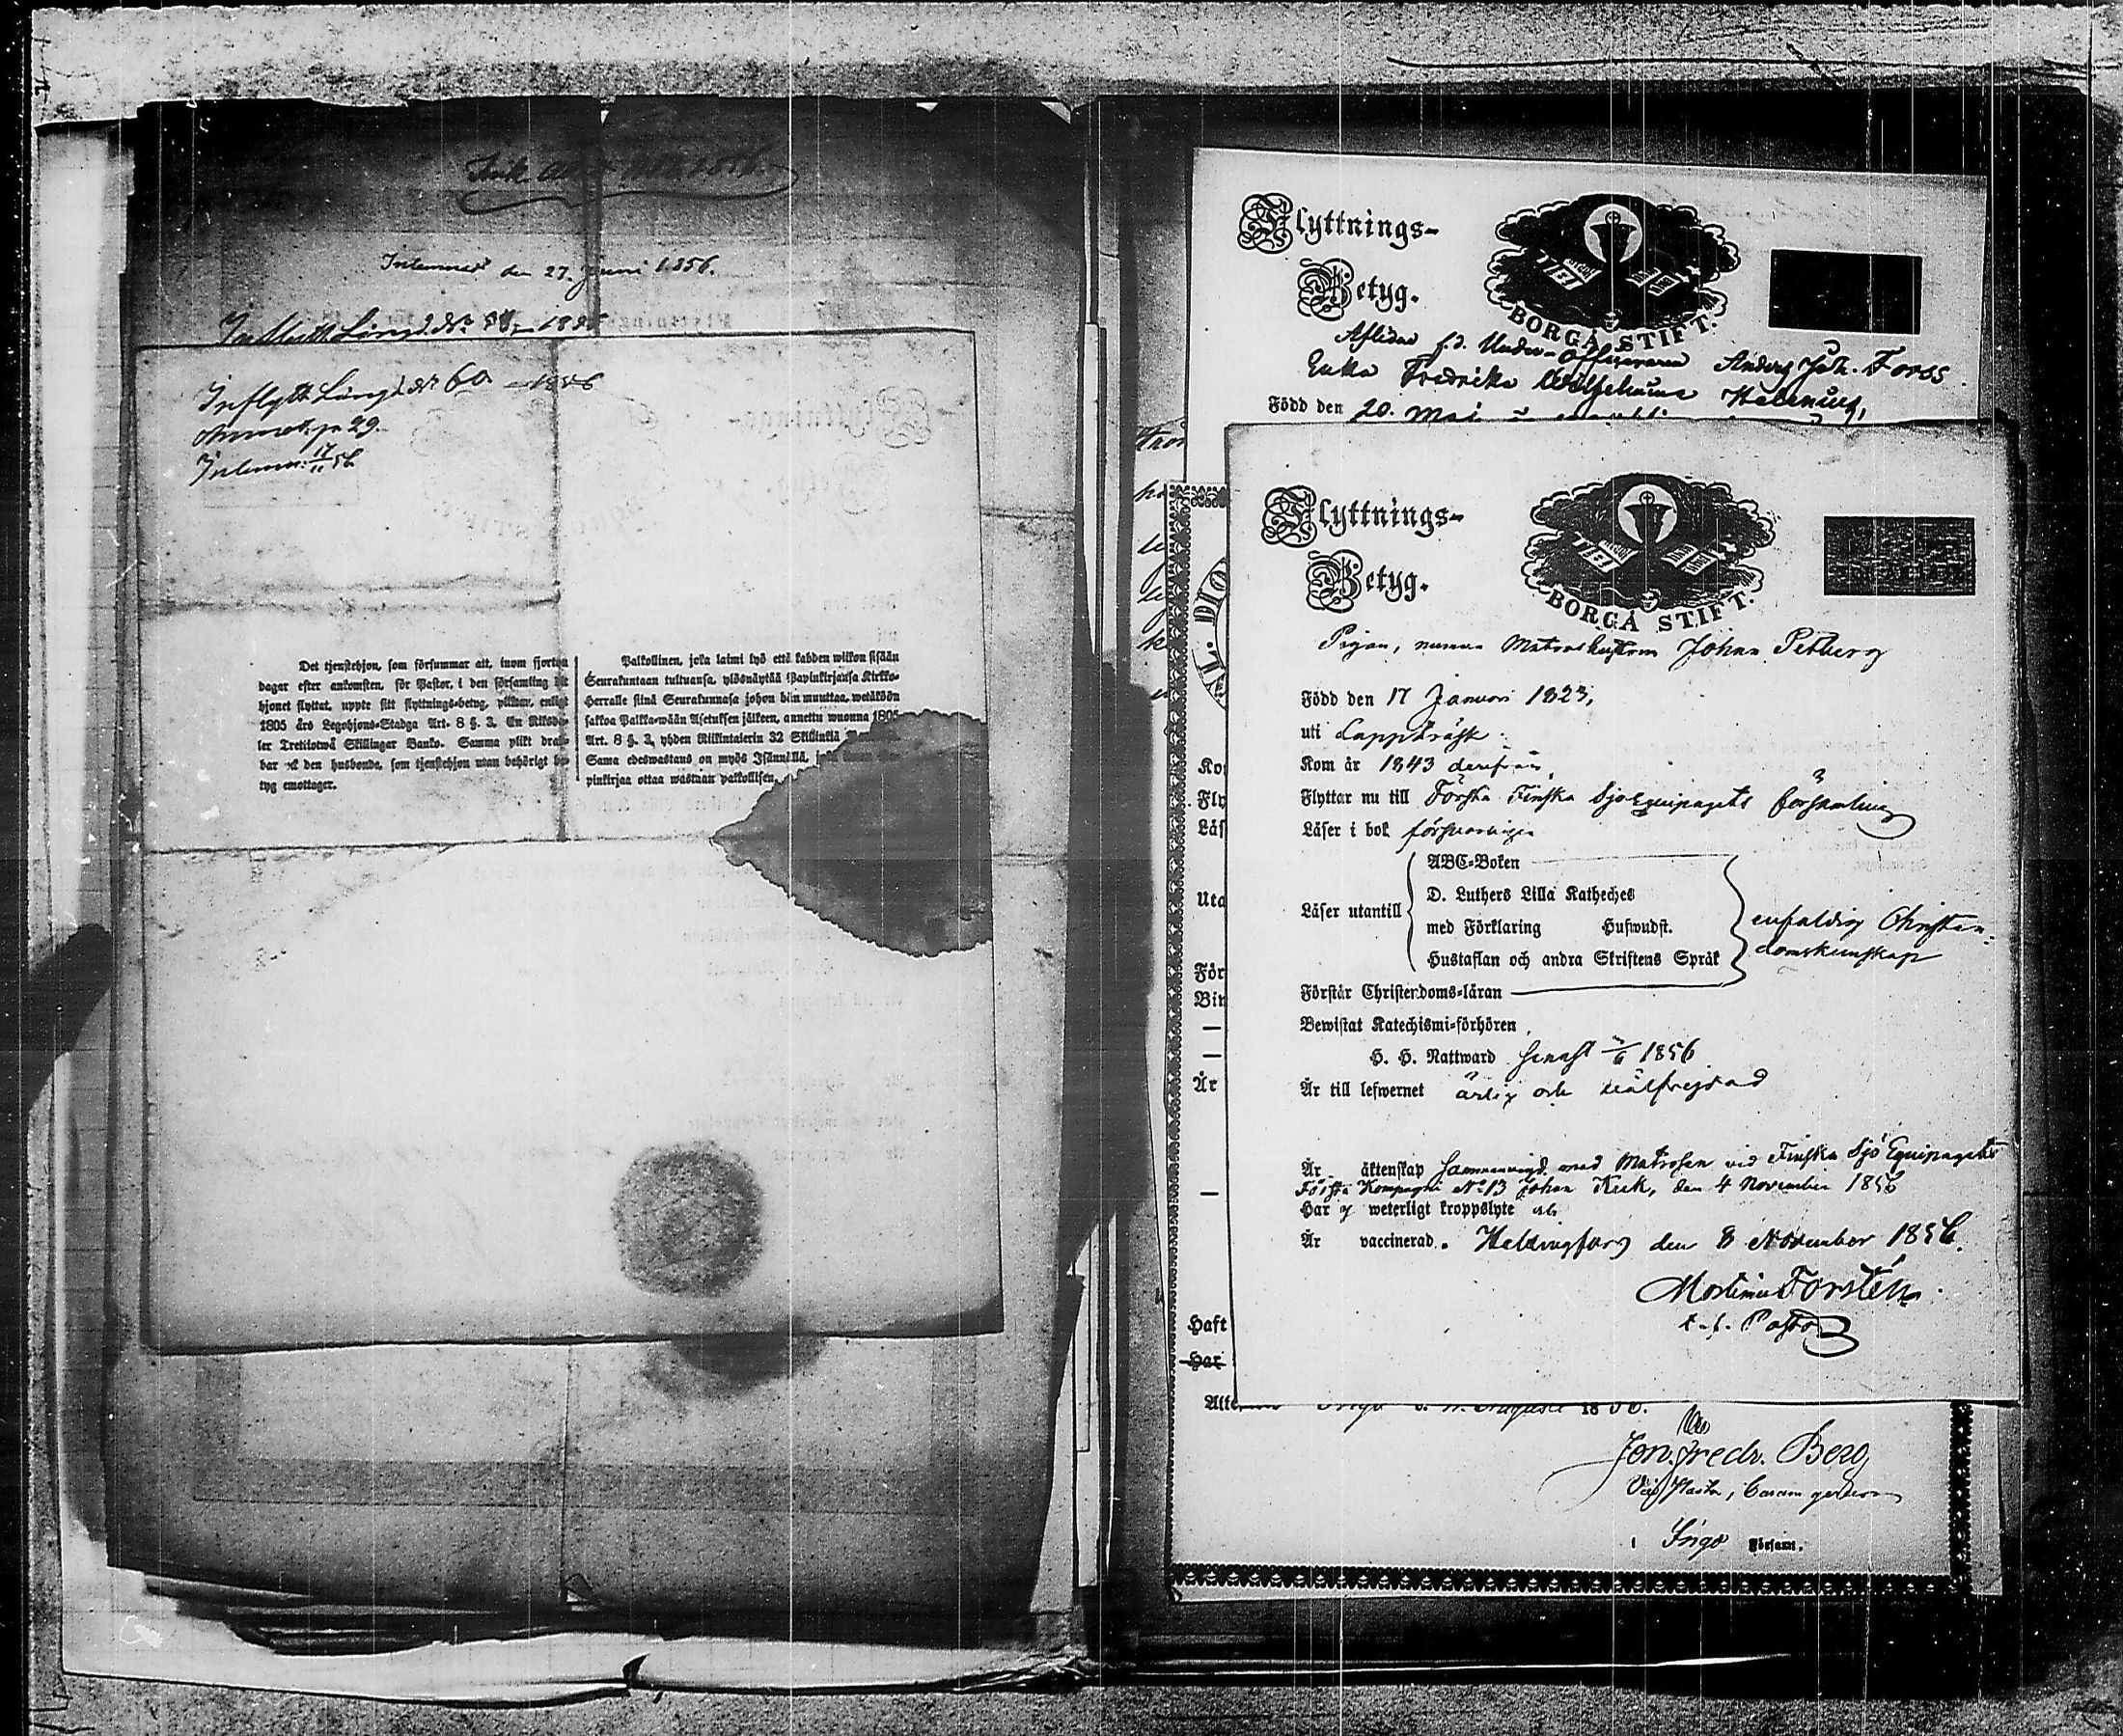 Inlemnad den 27. Juni 1856.
Inflytt. Längd. №
Inflytt. Längd № 60 1856
Annot. p. 29.
Inlemn: 17/11 56
Det tjenstehjon, som försummar att, inom fjorton
dagar efter ankomsten, för Pastor, i den församling dit
hjonet flyttat, uppte sitt flyttnings-betyg, pliktar, enligt
1805 års Legohjons-Stadga Art. 8 §. 3. En Riksda-
ler Trettiotwå Skillingar Banko. Samma plikt dra-
bar ock den husbonde, som tjenstehjon utan behörigt be-
tyg emottager.
Palkollinen, joka laimi lyö että kahden wiikon sisään
Seurakuntaan tultuansa, ylösnäytää Papinkirjansa Kirkko-
Herralle siinä Seurakunnasa johon hän muuttaa, wetäköön
sakkoa Palkka-wään Asetuksen jälkeen, annettu wuonna 1805
Art. 8 §. 3, yhden Riikintalerin 32 Skillinkiä
Sama edeswastaus on myös Isännällä,
pinkirjaa ottaa wastaan palkollisen.
Flyttnings-
Betyg.
BORGÅ STIFT.
Aflidne f.d. Under-officeraren Anders Joh. Forss
Enka Fredrika Wilhelmina Helenius,
Född den 20. Maj
Flyttnings-
Betyg.
BORGÅ STIFT.
Pigan, numera Matroshustrun Johan Petberg
Född den 17 Januari 1823,
uti Lappträsk.
Kom år 1843 derifrån
Flyttar nu till Första Finska Sjö Equipagets församling
Läser i bok försvarligen
ABC-Boken
D. Luthers Lilla Katheches
Läser utantill med Förklaring Hufwudst.
Hustaflan och andra Skriftens Språk
enfaldig Christen-
domskunskap
Förstår Christendoms-läran
Bewistat Katechismi-förhören
H. H. Nattward senast 1856
Är till lefwernet ärlig och wälfrejdad
Är äktenskap sammanvigd med Matrosen vid Finska Sjö Equipagets
Första Kompagni № 13 Johan Kuk, den 4 November 1856
Har ej weterligt kroppslyte
Är vaccinerad. Helsingfors den 8 November 1856.
Mortimer Forstén
t. f. Pastor
Kom
Fly
Läs
Uta
För
Är
Haft
Har
Atte
Ingo d. Augusti 1856.
Jon. Fredr. Berg
i Ingo Församl.